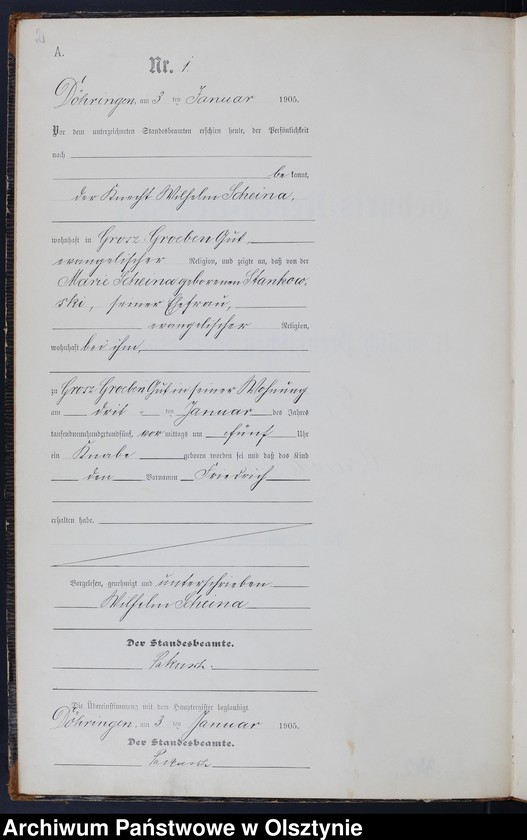 A.
Nr. 1.
Döhringen, am 3 ten Januar 1905.
Vor dem unterzeichneten Standesbeamten erschien heute, der Persönlichkeit
nach
be kannt,
der Knecht Wilhelm Scheina,
wohnhaft in Grosz Groeben Gut,
evangelischer Religion, und zeigte an, daß von der
Marie Scheina geborenen Stankow-
ski, seiner Ehefrau,
evangelischer Religion,
wohnhaft bei ihm,
zu Grosz Groeben Gut in seiner Wohnung
am drit ten Januar des Jahres
tausendneunhundertundfünf, vor mittags um fünf Uhr
ein Knabe geboren worden sei und daß das Kind
den Vornamen Friedrich
erhalten habe.
Vorgelesen, genehmigt und unterschrieben
Wilhelm Scheina
Der Standesbeamte.
Die Übereinstimmung mit dem Hauptregister beglaubigt
Döhringen, am 3 ten Januar 1905.
Der Standesbeamte.
Archiwum Państwowe w Olsztynie